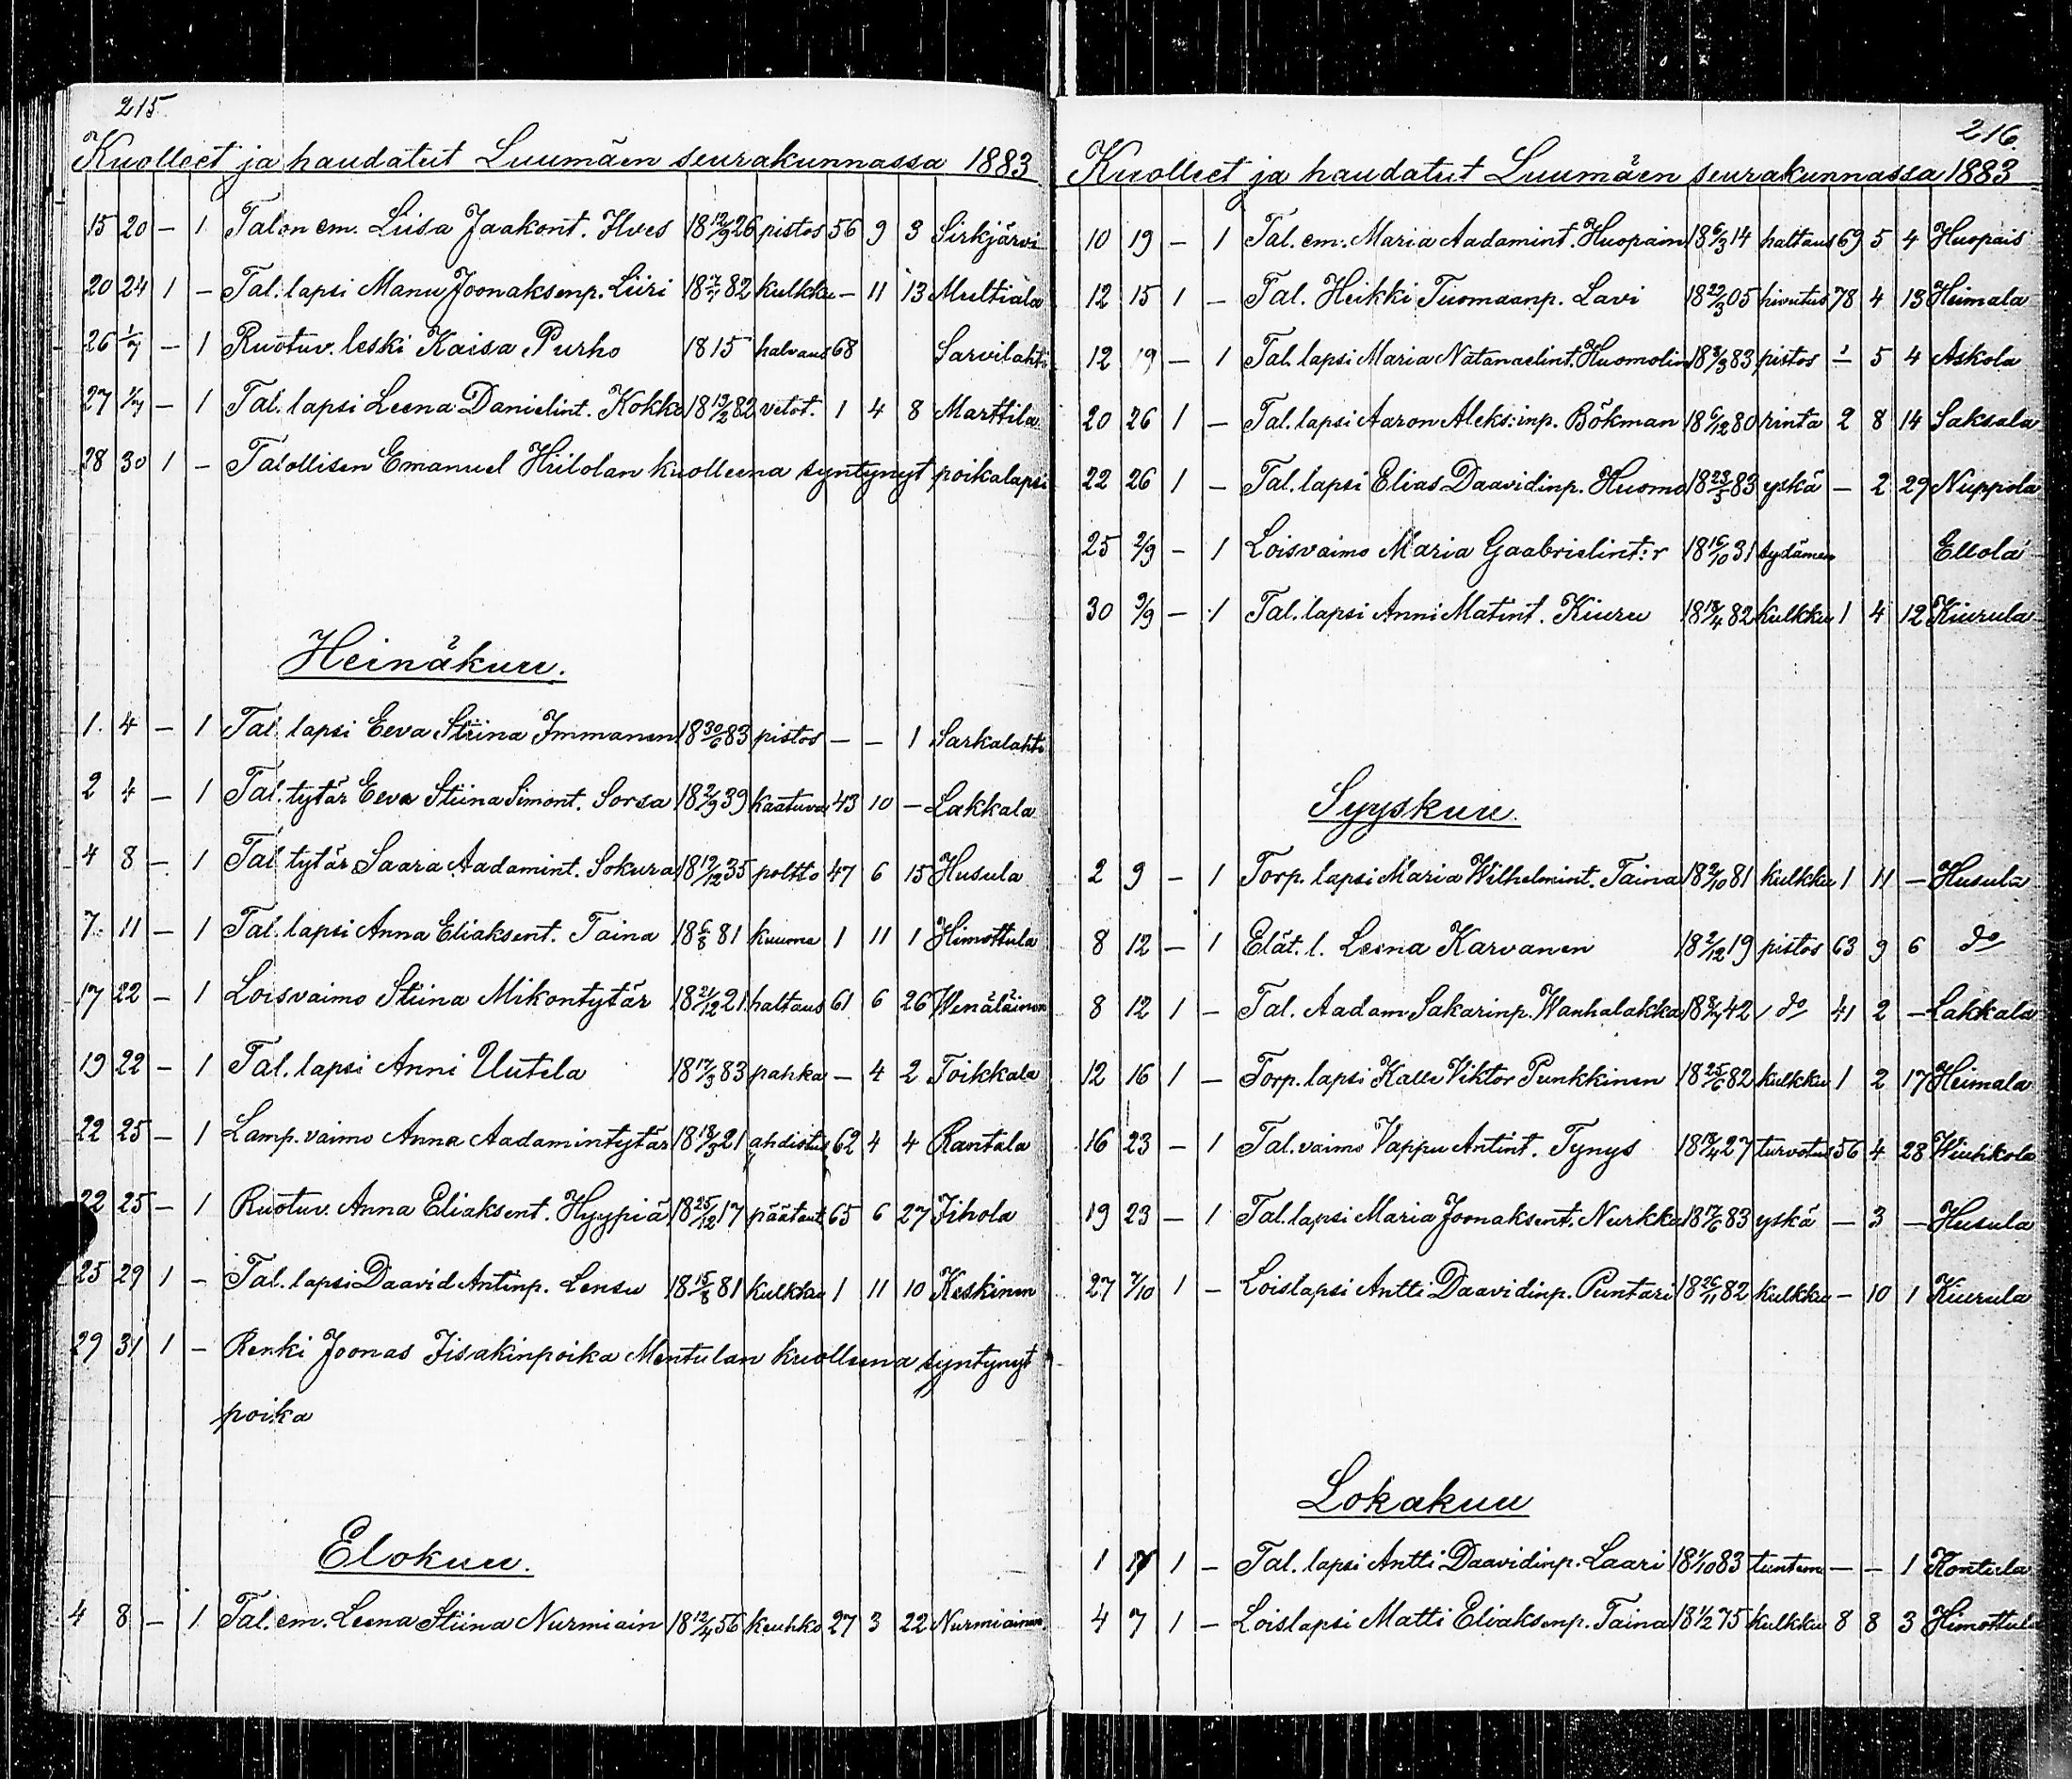 215
Kuolleet ja haudatut Luumäen seurakunnassa 1883
15 20 – 1 Talon em. Liisa Jaakont. Ilves 18 12/9 26 pistos 56 9 3 Sirkjärvi
20 24 1 – Tal. lapsi Manu Joonaksenp. Liiri 18 7/7 82 kulkku – 11 13 Multiala
26 1/7 – 1 Ruotuv. leski Kaisa Purho 1815 halvaus 68 Sarvilahti
27 1/7 – 1 Tal. lapsi Leena Danielint. Kokko 18 19/2 82 vetot. 1 4 8 Marttila
28 30 1 – Talollisen Emanuel Hiilolan kuolleena syntynyt poikalapsi
Heinäkuu.
1 4 – 1 Tal. lapsi Eeva Stiina Immanen 18 30/6 83 pistos – – 1 Sarkalahti
2 4 – 1 Tal. tytär Eeva Stiina Simont. Sorsa 18 2/9 39 kaatuva 43 10 – Lakkala
4 8 – 1 Tal tytär Saara Aadamint. Sokura 18 19/12 35 poltto 47 6 15 Husula
7 11 – 1 Tal. lapsi Anna Eliaksent. Taina 18 6/8 81 kuuma 1 11 1 Himottula
17 22 – 1 Loisvaimo Stiina Mikontytär 18 21/12 21 haltaus 61 6 26 Wenäläinen
19 22 – 1 Tal. lapsi Anni Uutela 18 17/3 83 pahka – 4 2 Toikkala
22 25 – 1 Lamp. vaimo Anna Aadamintytär 18 18/3 21 ahdistus 62 4 4 Rantala
22 25 – 1 Ruotuv. Anna Eliaksent. Hyypiä 18 25/12 17 päätaut 65 6 27 Iihola
25 29 1 – Tal. lapsi Daavid Antinp. Lensu 18 15/8 81 kulkku 1 11 10 Keskinen
29 31 1 – Renki Joonas Iisakinpoika Mentulan kuolleena syntynyt
poika
Elokuu.
4 8 – 1 Tal. em. Leena Stiina Nurmiain 18 12/4 56 keuhko 27 3 22 Nurmiainen
216.
Kuolleet ja haudatut Luumäen seurakunnassa 1883
10 19 – 1 Tal. em. Maria Aadamint. Huopain 18 6/3 14 haltaus 69 5 4 Huopais
12 15 1 – Tal. Heikki Tuomaanp. Lavi 18 22/3 05 hivutus 78 4 13 Heimala
12 19 – 1 Tal. lapsi Maria Natanaelint. Huomolin 18 8/3 83 pistos – 5 4 Askola
20 26 1 – Tal. lapsi Aaron Aleks:inp. Bökman 18 6/12 80 rinta 2 8 14 Saksala
22 26 1 – Tal. lapsi Elias Daavidinp. Huomo 18 23/5 83 yskä – 2 29 Nuppola
25 2/9 – 1 Loisvaimo Maria Gaabrielint:r 18 16/10 31 sydämen Ellola
30 9/9 – 1 Tal. lapsi Anni Matint. Kiuru 18 18/4 82 kulkku 1 4 12 Kiurula
Syyskuu.
2 9 – 1 Torp. lapsi Maria Wilhelmint. Taina 18 2/10 81 kulkku 1 11 – Husula
8 12 – 1 Elät. l. Leena Karvanen 18 2/12 19 pistos 63 9 6 do
8 12 1 – Tal. Aadam Sakarinp. Wanhalakka 18 8/7 42 do 41 2 – Lakkala
12 16 1 – Torp. lapsi Kalle Viktor Punkkinen 18 25/6 82 kulkku 1 2 17 Heimala
16 23 – 1 Tal. vaimo Vappu Antint. Tynys 18 18/4 27 turvotus 56 4 28 Wiuhkola
19 23 – 1 Tal. lapsi Maria Joonaksent. Nurkka 18 19/6 83 yskä – 3 – Husula
27 7/10 1 – Loislapsi Antti Daavidinp. Puntari 18 26/11 82 kulkku – 10 1 Kiurula
Lokakuu
1 1 – Tal. lapsi Antti Daavidinp. Laari 18 1/10 83 tuntem – – 1 Kontula
4 7 1 – Loislapsi Matti Eliaksenp. Taina 18 1/2 75 kulkku 8 8 3 Himottula